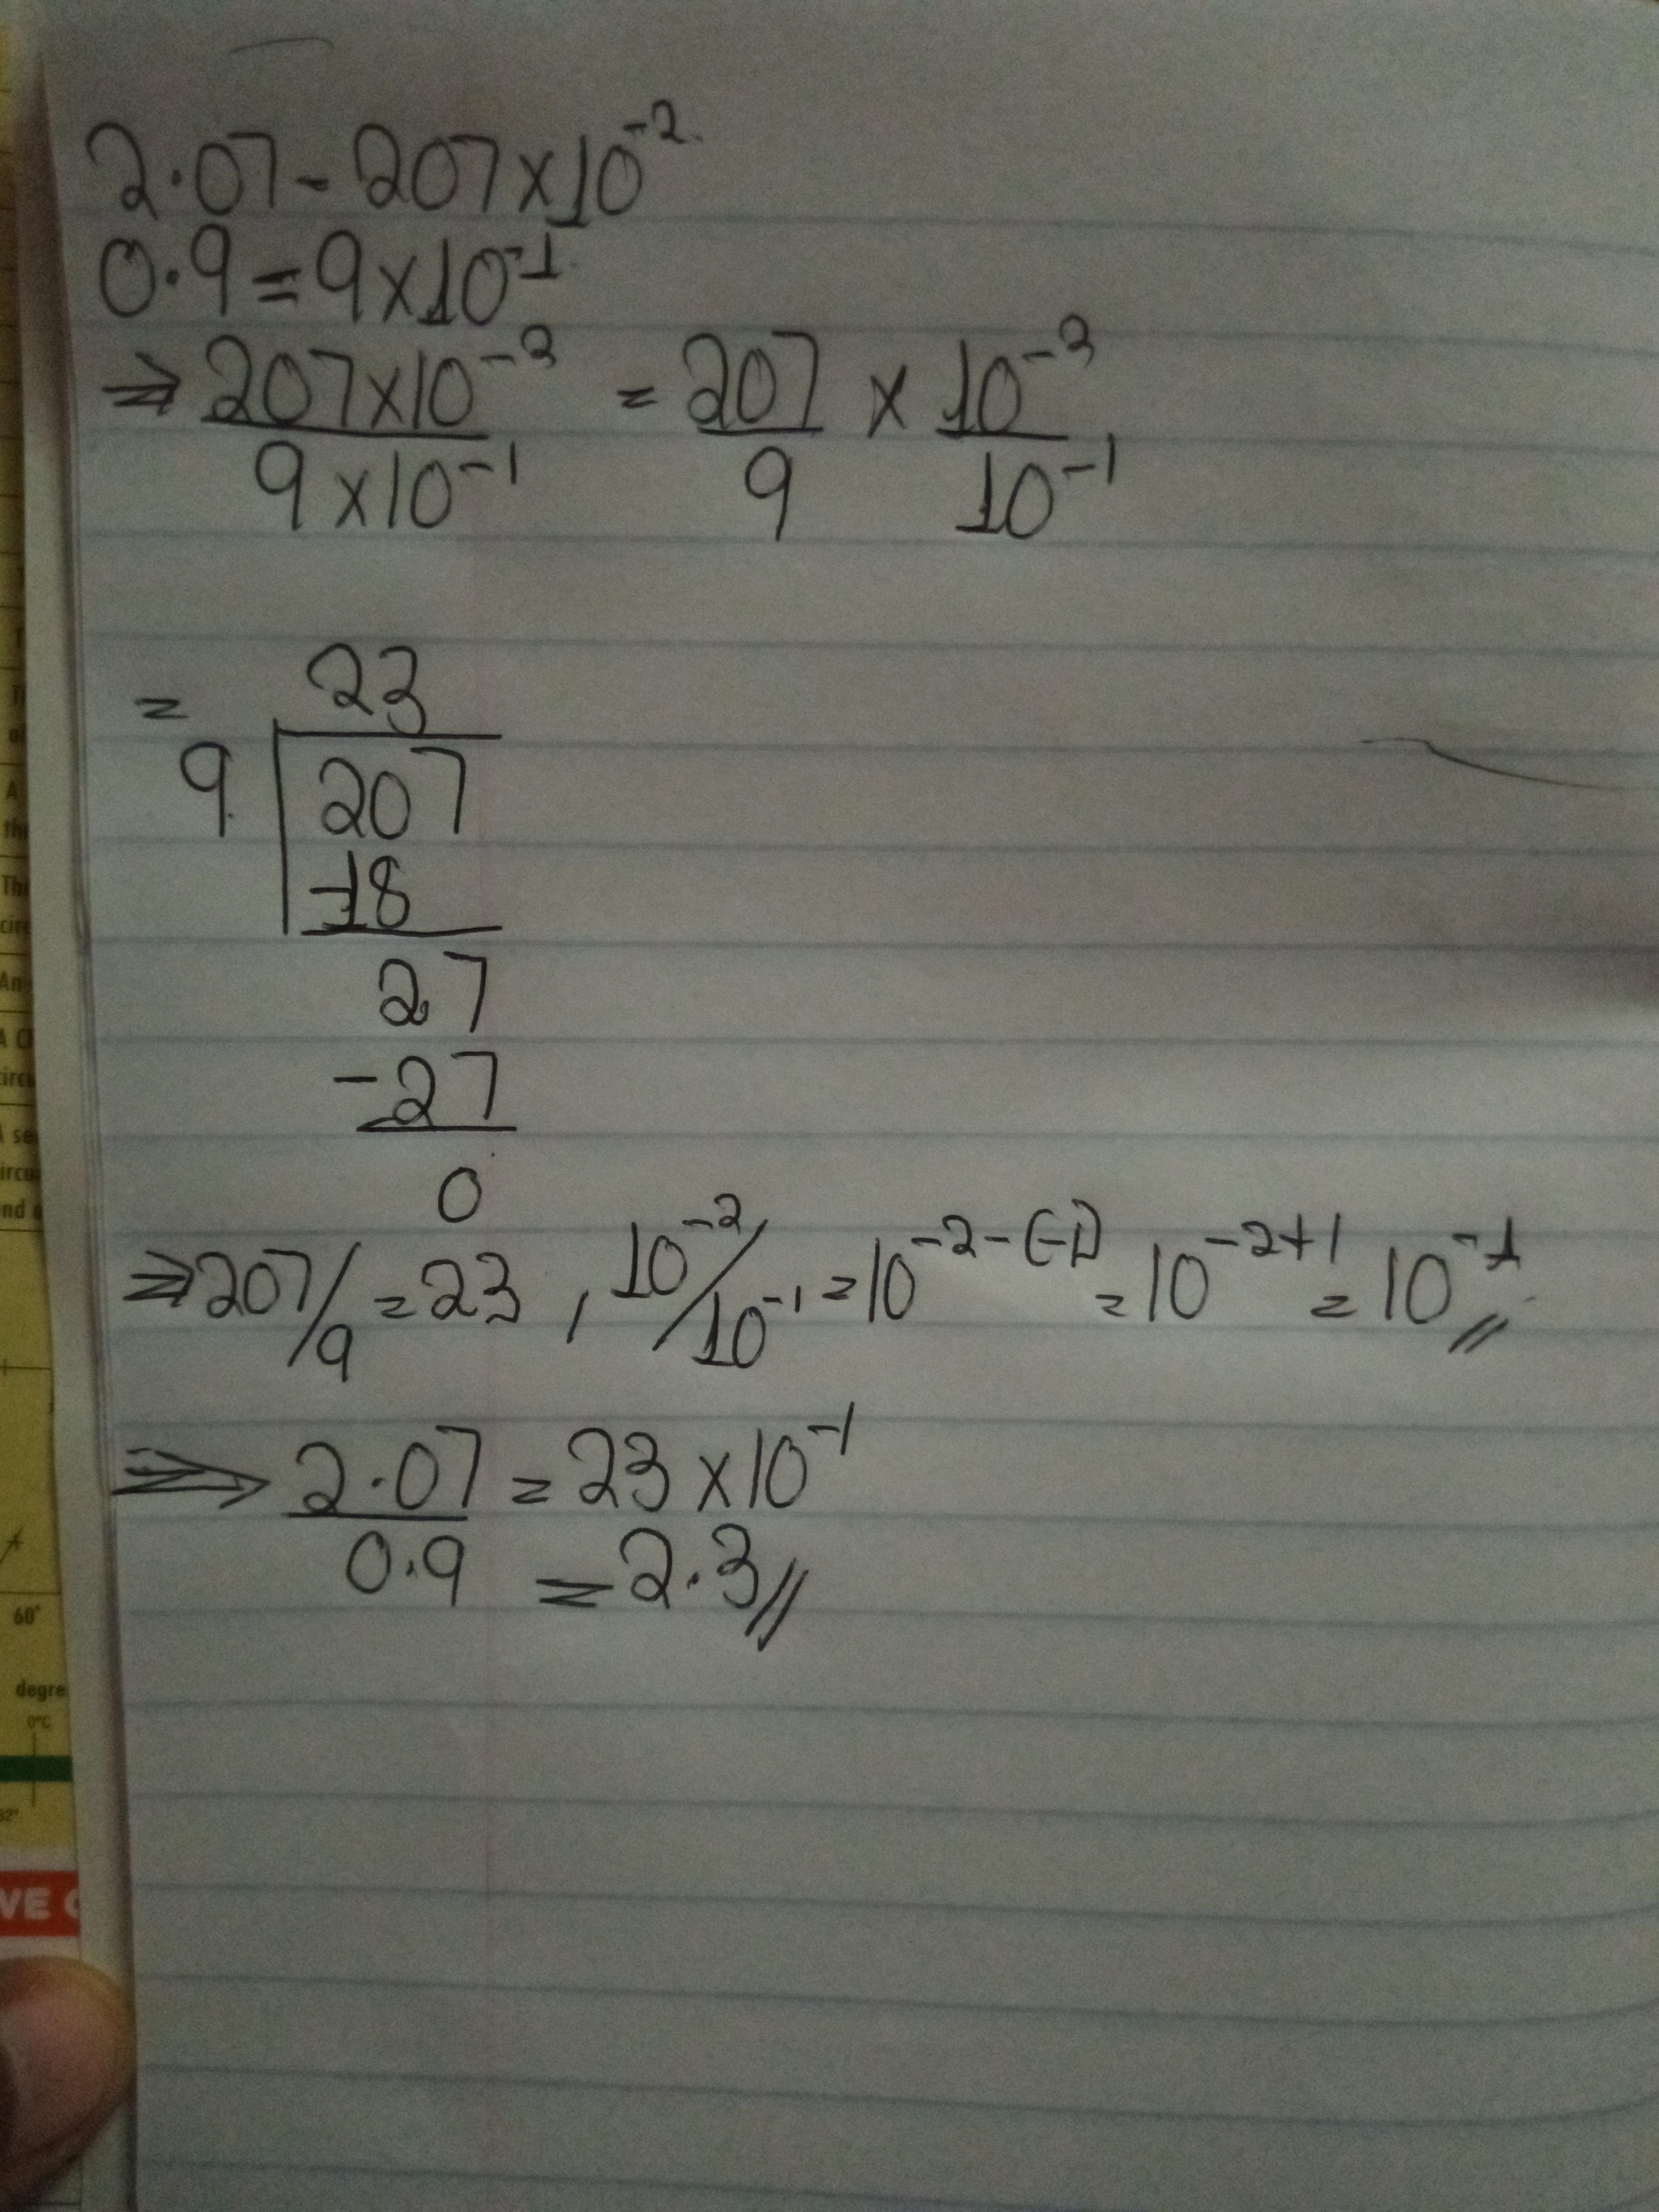 2.07 - 207×10⁻²
0.9 = 9×10⁻¹
⇒ 207×10⁻² / 9×10⁻¹ = 207/9 × 10⁻²/10⁻¹
= 23
9 207
-18
27
-27
0
⇒ 207/9 = 23 , 10⁻²/10⁻¹ = 10⁻²⁻⁽⁻¹⁾ = 10⁻²⁺¹ = 10⁻¹//
⇒ 2.07/0.9 = 23×10⁻¹
= 2.3//
60°
degre
0°C
32°
VE